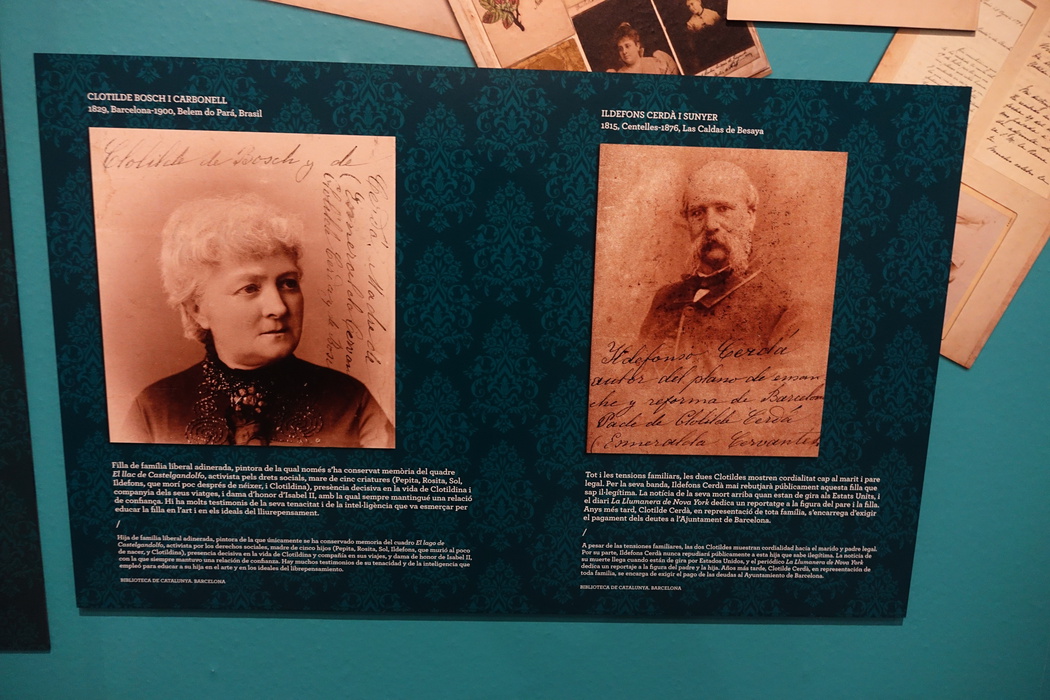 CLOTILDE BOSCH I CARBONELL
1829, Barcelona-1900, Belem do Pará, Brasil
Clotilde de Bosch y de
Cerdá. Madre de
(Esmeralda Cervan
Clotilde Cerdá y de Bos
Filla de família liberal adinerada, pintora de la qual només s'ha conservat memòria del quadre
El llac de Castelgandolfo, activista pels drets socials, mare de cinc criatures (Pepita, Rosita, Sol,
Ildefons, que morí poc després de néixer, i Clotildina), presència decisiva en la vida de Clotildina i
companyia dels seus viatges, i dama d'honor d'Isabel II, amb la qual sempre mantingué una relació
de confiança. Hi ha molts testimonis de la seva tenacitat i de la intel·ligència que va esmerçar per
educar la filla en l'art i en els ideals del lliurepensament.
/
Hija de familia liberal adinerada, pintora de la que únicamente se ha conservado memoria del cuadro El lago de
Castelgandolfo, activista por los derechos sociales, madre de cinco hijos (Pepita, Rosita, Sol, Ildefons, que murió al poco
de nacer, y Clotildina), presencia decisiva en la vida de Clotildina y compañía en sus viajes, y dama de honor de Isabel II,
con la que siempre mantuvo una relación de confianza. Hay muchos testimonios de su tenacidad y de la inteligencia que
empleó para educar a su hija en el arte y en los ideales del librepensamiento.
BIBLIOTECA DE CATALUNYA. BARCELONA
ILDEFONS CERDÀ I SUNYER
1815, Centelles-1876, Las Caldas de Besaya
Ildefonso Cerdá
autor del plano de ensan
che y reforma de Barcelon
Padre de Clotilde Cerdá
(Esmeralda Cervantes
Tot i les tensions familiars, les dues Clotildes mostren cordialitat cap al marit i pare
legal. Per la seva banda, Ildefons Cerdà mai rebutjarà públicament aquesta filla que
sap il·legítima. La notícia de la seva mort arriba quan estan de gira als Estats Units, i
el diari La Llumanera de Nova York dedica un reportatge a la figura del pare i la filla.
Anys més tard, Clotilde Cerdà, en representació de tota família, s'encarrega d'exigir
el pagament dels deutes a l'Ajuntament de Barcelona.
/
A pesar de las tensiones familiares, las dos Clotildes muestran cordialidad hacia el marido y padre legal.
Por su parte, Ildefons Cerdà nunca repudiará públicamente a esta hija que sabe ilegítima. La noticia de
su muerte llega cuando están de gira por Estados Unidos, y el periódico La Llumanera de Nova York
dedica un reportaje a la figura del padre y la hija. Años más tarde, Clotilde Cerdà, en representación de
toda familia, se encarga de exigir el pago de las deudas al Ayuntamiento de Barcelona.
BIBLIOTECA DE CATALUNYA. BARCELONA